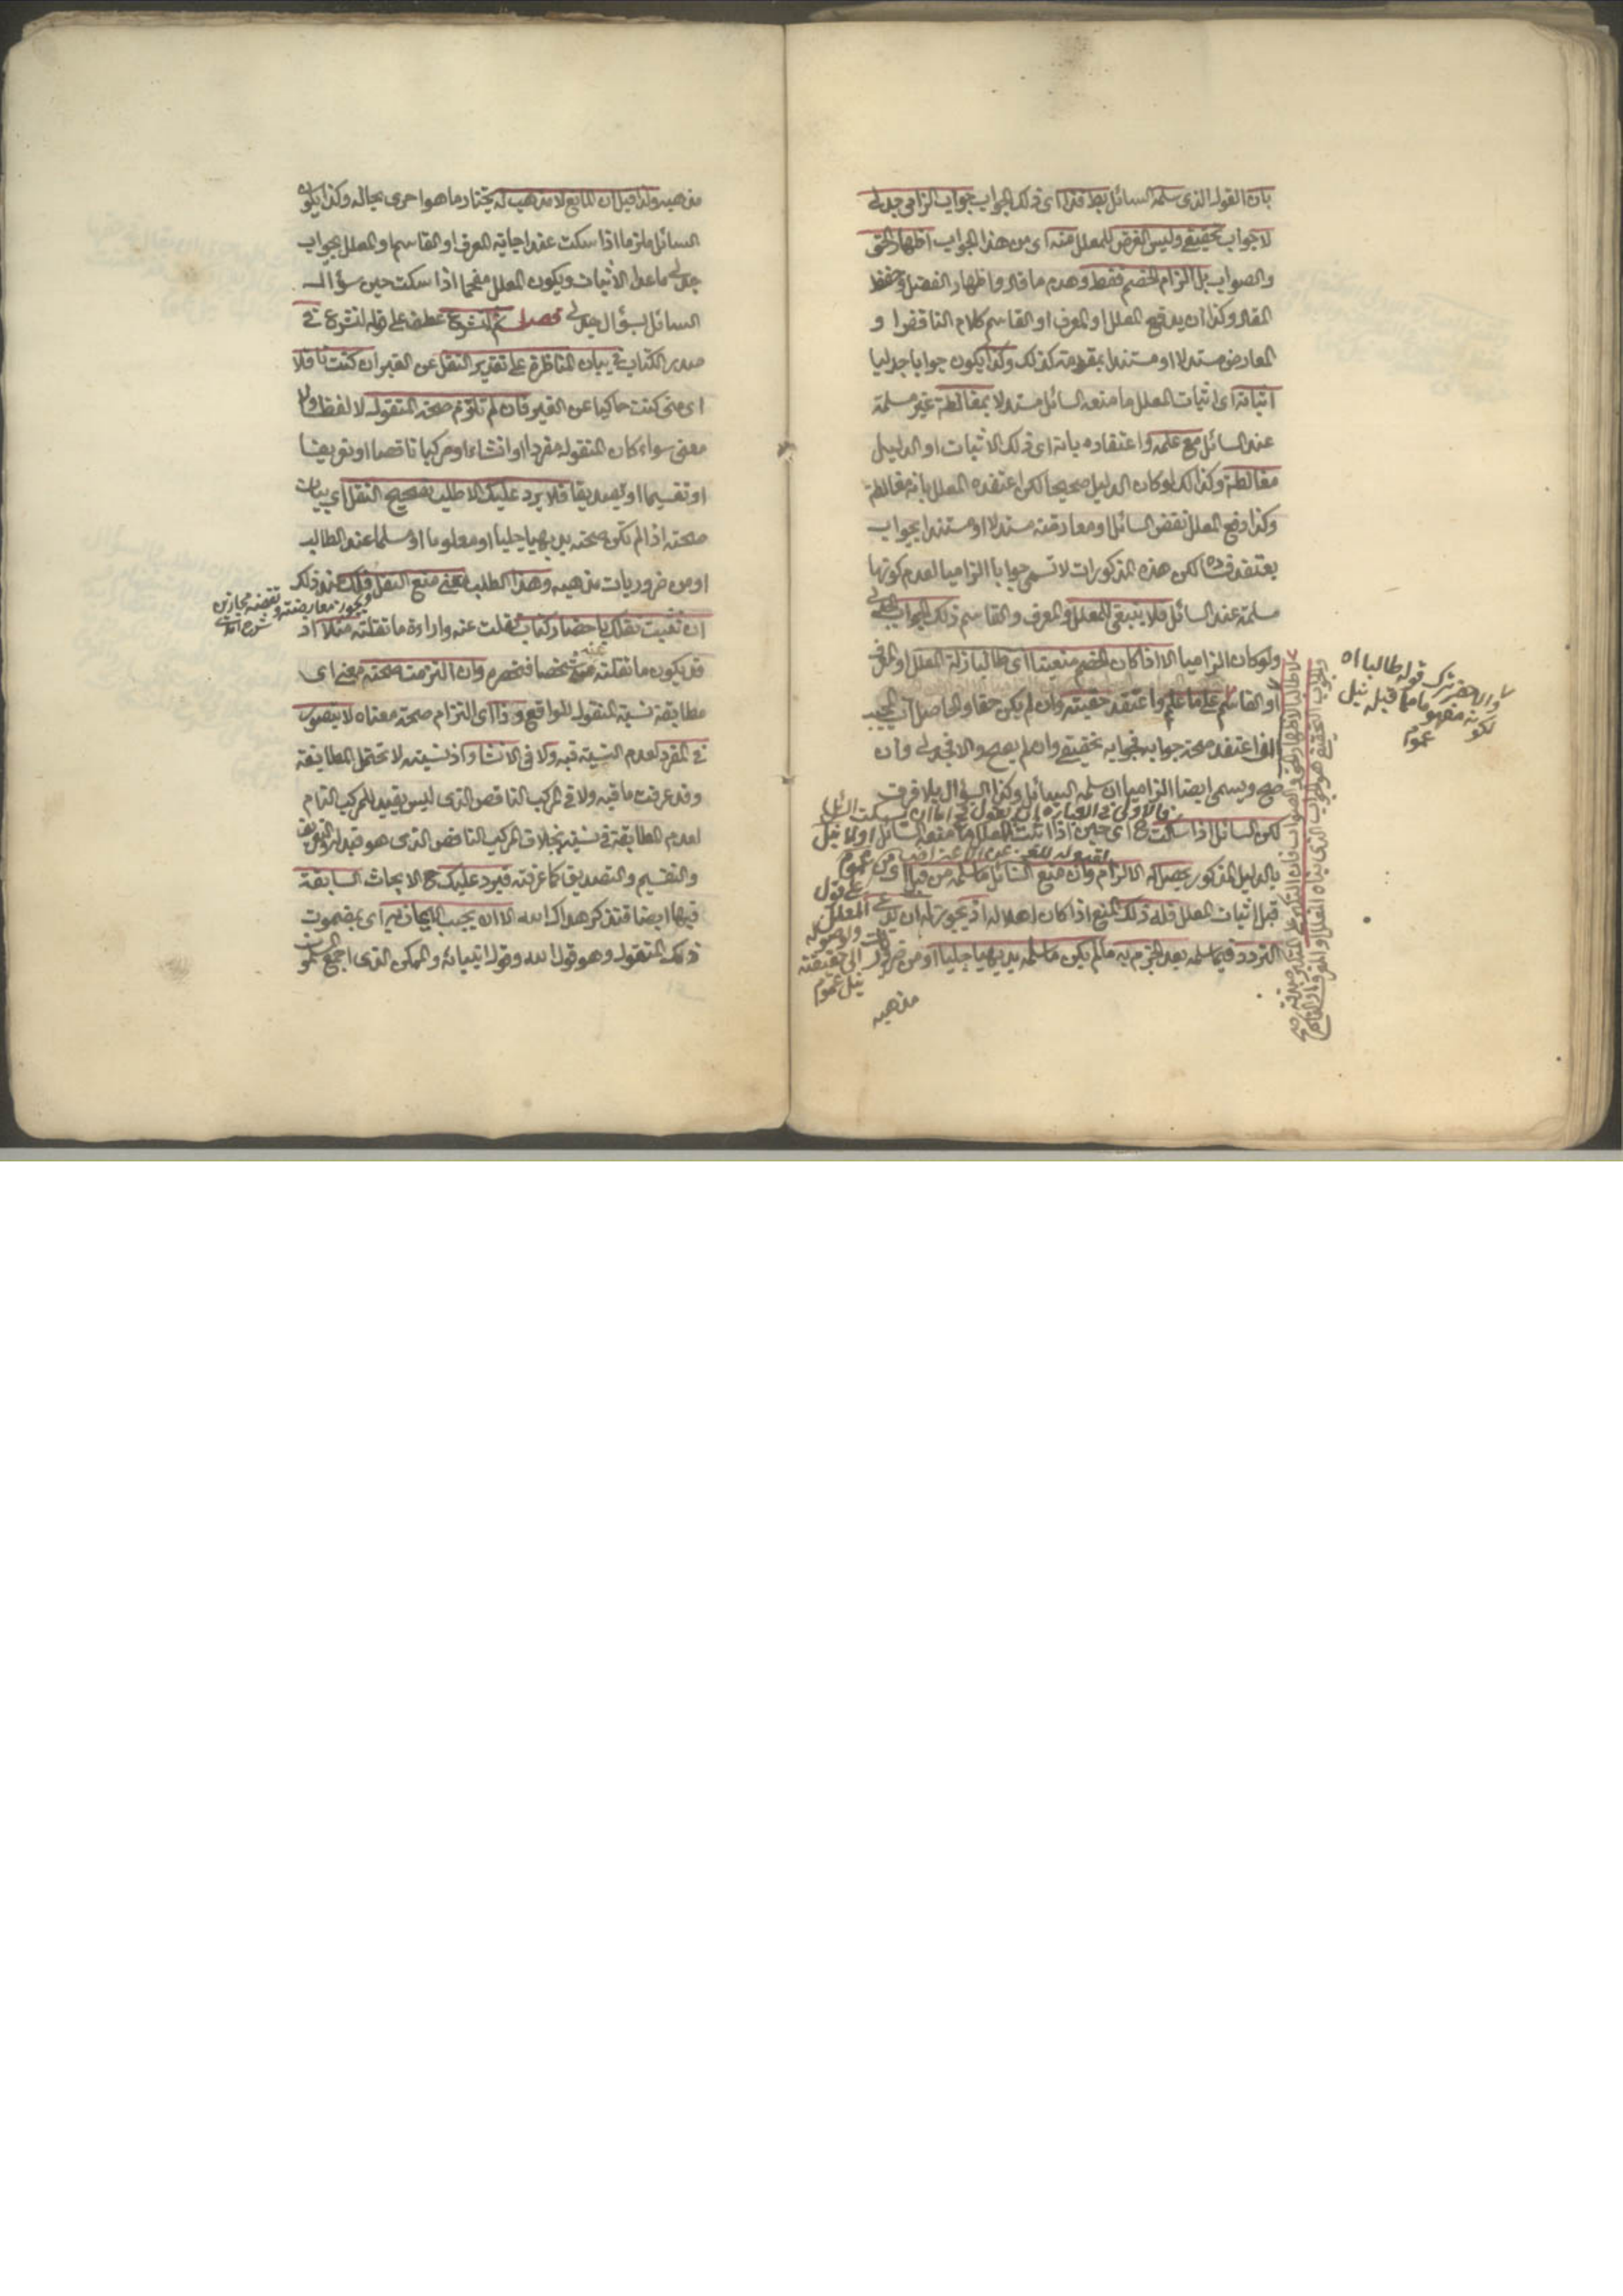 بان القول الذى سلمه السائل بط فذا اى ذلك الجواب جواب الزامى جدلى
لا جواب تحقيقى وليس الغرض للمعلل منه اى من هذا الجواب اظهار الحق
والصواب بل الزام الخصم فقط وهدم ما قاله واظهار الفضل وحفظ
المقال وكذا ان يدفع المعلل او المعرف او القاسم كلام الناقض او
المعارض مستدلا او مستندا بمقدمة كذلك وكذا يكون جوابا جدليا
اثباته اى اثبات المعلل ما منعه السائل مستدلا بمغالطة غير مسلمة
عند السائل مع علمه واعتقاده بانه اى ذلك الاثبات او الدليل
مغالطة وكذا لك لو كان الدليل صحيحا لكن اعتقده المعلل بانه مغالطة
وكذا دفع المعلل نقض السائل او معارضته مستدلا او مستندا بجواب
يعتقد فساده لكن هذه المذكورات لا تسمى جوابا الزاميا لعدم كونها
مسلمة عند السائل فلا ينبغى للمعلل والمعرف والقاسم ذلك الجواب الجدلى
ولو كان الزاميا الا اذا كان الخصم متعنتا اى طالبا زلة المعلل او المعرف
او القاسم على ما علم واعتقد حقيته وان لم يكن حقا والحاصل ان المجيب
اعتقد صحة جوابه فجوابه تحقيقى وان لم يصح والا فجدلى وان
صح ويسمى ايضا الزاميا ان سلمه السائل وكذا السؤال بلا فرق
لكن السائل اذا سكت ح اى حين اذا اثبت المعلل ما منعه السائل اولا
بالدليل المذكور يحصل له الالزام وان منع السائل ما سلمه من قبل اى من
قبل اثبات المعلل فله ذلك المنع اذا كان اهلا له اذ يجوز له ان
التردد فيما سلمه بعد الجزم به ما لم يكن ما سلمه بديهيا جليا او من ضروريات
مذهبه
والاخصر ترك قوله طالبا اه
لكونه مفهوما مما قبله نيل
عموم
مذهبه ولذا قيل ان المانع لا مذهب له يختار ما هو احرى بحاله وكذا يكون
السائل ملزما اذا سكت عند اجابة المعرف او القاسم او المعلل بجواب
جدلى ما عدا الاثبات ويكون المعلل مفحما اذا سكت حين سؤال
السائل بسؤال جدلى فصل ثم لنشرع عطف على قوله لنشرع فى
صدر الكتاب فى بيان المناظرة على تقدير النقل عن الغير ان كنت ناقلا
اى متى كنت حاكيا عن الغير فان لم تلتزم صحة المنقول لا لفظا ولا
معنى سواء كان المنقول مفردا او انشاء او مركبا ناقصا او تعريفا
او تقسيما او تصديقا فلا يرد عليك الا طلب تصحيح النقل اى بيان
صحته اذا لم تكن صحته بديهيا جليا او معلوما او مسلما عند الطالب
او من ضروريات مذهبه وهذا الطلب معنى منع النقل فلك عند ذلك
ان تثبت نقلك باحضار كتاب نقلت عنه واراءة ما نقلته مثلا اذ
قد يكون ما نقلته عنه شخصا فتحضره وان التزمت صحته معنى اى
مطابقة نسبة المنقول للواقع وذا اى التزام صحة معناه لا يتصور
فى المفرد لعدم النسبة فيه ولا فى الانشاء اذ نسبته لا تحتمل المطابقة
وقد عرفت ما فيه ولا فى المركب الناقص الذى ليس بقيد للمركب التام
لعدم المطابقة فى نسبته بخلاف المركب الناقص الذى هو قيد له والتعريف
والتقسيم والتصديق كما عرفته فيرد عليك ح الابحاث السابقة
فيها ايضا فتذكر هداك الله الا ان يجيب الايمان به اى بمضمون
ذلك المنقول وهو قول الله وقول انبيائه والممكن الذى اجمع المسلمون
ويجوز معارضته ونقضه مجازين
شرح آمدى